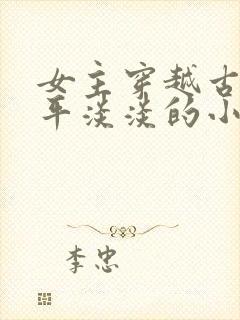 女主穿越古
平淡淡的小
李忠